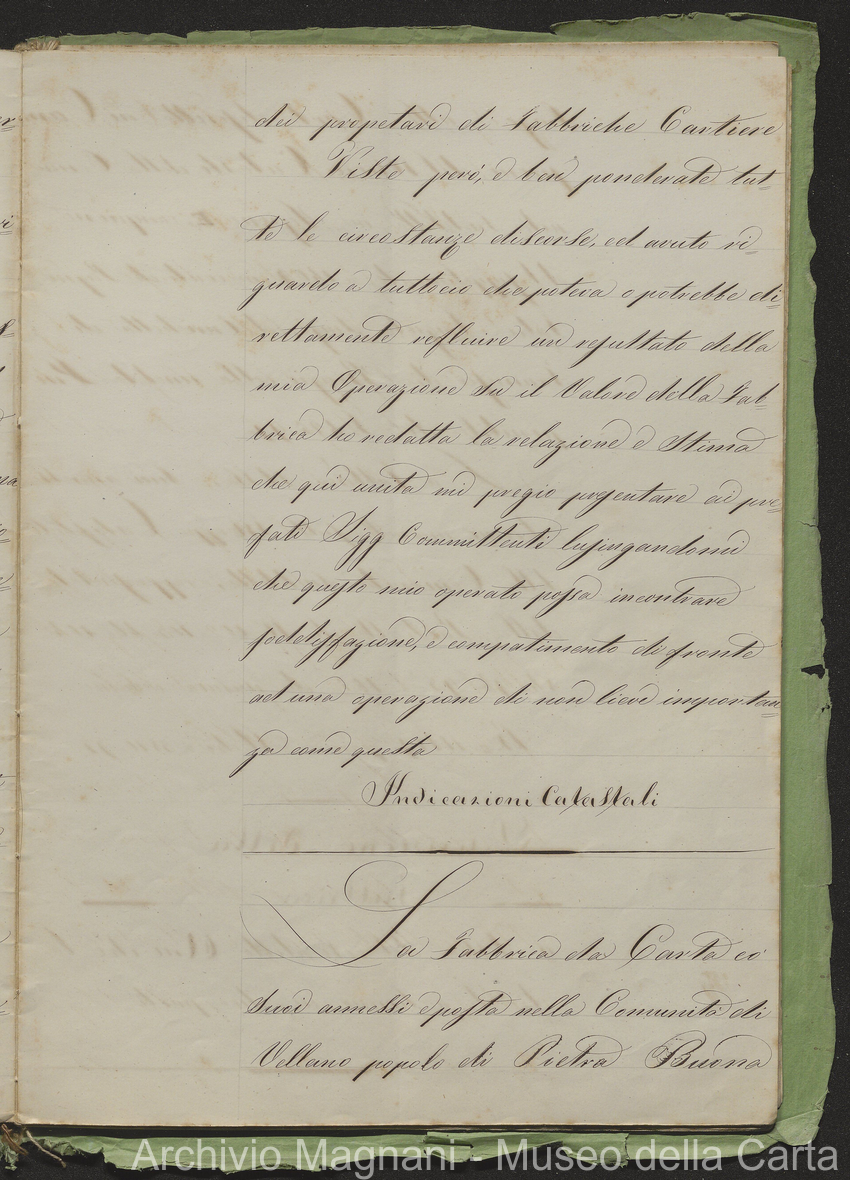 dei propetari di Fabbriche Cartiere
Viste però, e ben ponderate tut=
te le circostanze discorse, ed avuto ri=
guardo a tuttociò che poteva o potrebbe di=
rettamente refluire un resultato della
mia Operazione su il Valore della Fab=
brica ho redatta la relazione e Stima
che qui unita mi pregio presentare ai pre=
fati Sigg Committenti lusingandomi
che questo mio operato possa incontrare
soddisfazione, e compatimento di fronte
ad una operazione di non lieve importan=
za come questa
Indicazioni Catastali
La Fabbrica da Carta co'
suoi annessi è posta nella Comunità di
Vellano popolo di Pietra Buona
Archivio Magnani - Museo della Carta